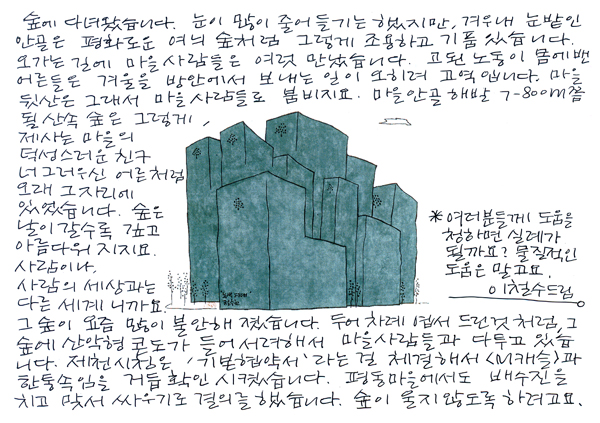 숲에 다녀왔습니다. 눈이 많이 줄어들기는 했지만, 겨우내 눈밭인
안골은 평화로운 여늬 숲처럼 그렇게 조용하고 기품 있습니다.
오가는 길에 마을사람들은 여럿 만났습니다. 고된 노동이 몸에 밴
어른들은 겨울을 방안에서 보내는 일이 오히려 고역입니다. 마을
뒷산은 그래서 마을 사람들로 붐비지요. 마을안골 해발 7-800m쯤
될 산속 숲은 그렇게,
제사는 마을의
덕성스러운 친구
너그러우신 어른처럼
오래 그자리에
있었습니다. 숲은
날이 갈수록 깊고
아름다워 지지요.
사람이나.
사람의 세상과는
다른 세계니까요.
*여러분들께 도움을
청하면 실례가
될까요? 물질적인
도움은 말고요.
이철수드림
그 숲이 요즘 많이 불안해 졌습니다. 두어 차례 엽서 드린것 처럼, 그
숲에 산악형콘도가 들어서려해서 마을사람들과 다투고 있습
니다. 제천시청은 '기본협약서'라는걸 체결해서 <M캐슬>과
한통속임을 거듭 확인 시켰습니다. 평동마을에서도 배수진을
치고 맞서 싸우기로 결의를 했습니다. 숲이 울지 않도록 하려고요.